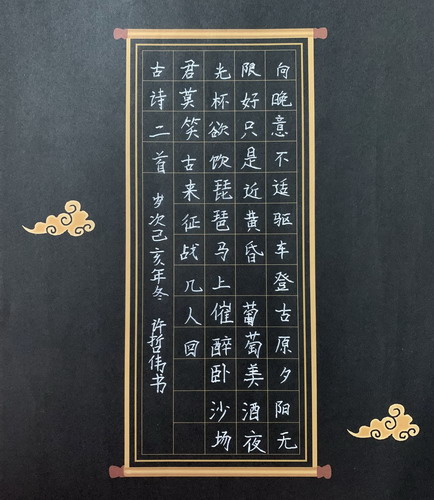 向晚意不适驱车登古原夕阳无
限好只是近黄昏 葡萄美酒夜
光杯欲饮琵琶马上催醉卧沙场
君莫笑古来征战几人回
古诗二首 岁次己亥年冬 许哲伟书